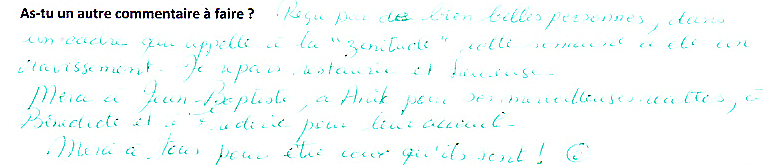 As-tu un autre commentaire à faire ? Reçu par de bien belles personnes, dans
un cadre qui appelle à la "zenitude" cette semaine a été un
ravissement. Je repars restaurée et heureuse.
Merci à Jean-Baptiste, à Anik pour ses merveilleuses nattes, à
Bénédicte et à Frédéric pour leur accueil.
Merci à tous pour être ceux qu'ils sont !